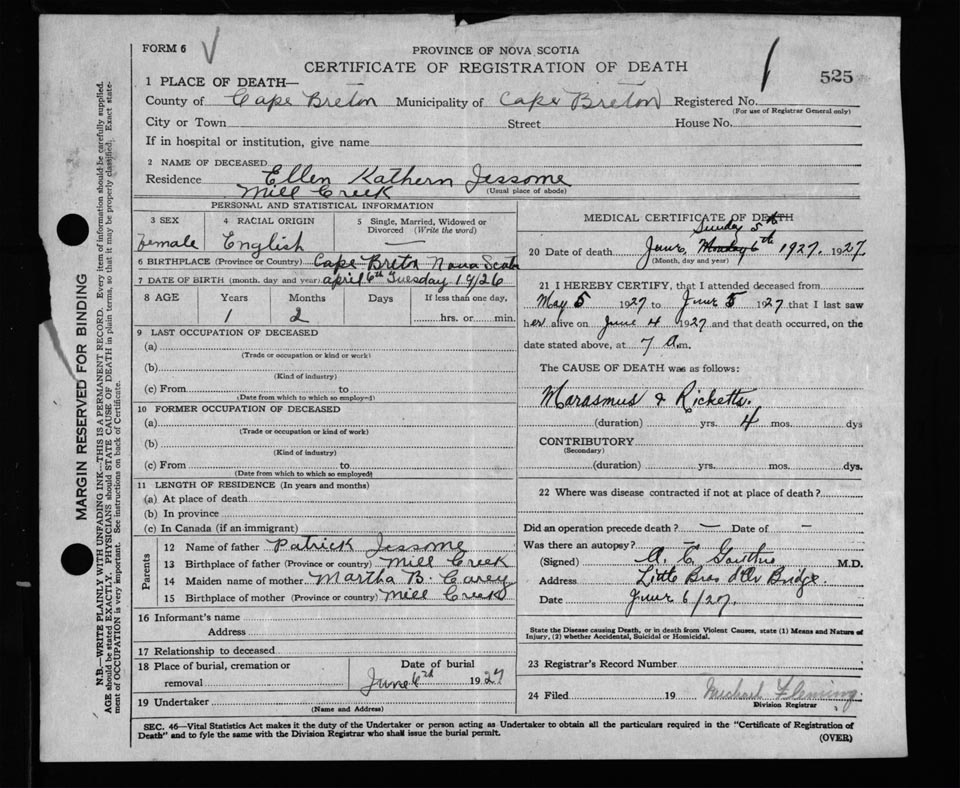 FORM 6
PROVINCE OF NOVA SCOTIA
CERTIFICATE OF REGISTRATION OF DEATH
525
1 PLACE OF DEATH—
County of Cape Breton Municipality of Cape Breton Registered No.
(For use of Registrar General only)
City or Town Street House No.
If in hospital or institution, give name
2 NAME OF DECEASED Ellen Kathern Jessome
Residence Mill Creek (Usual place of abode)
PERSONAL AND STATISTICAL INFORMATION
3 SEX 4 RACIAL ORIGIN 5 Single, Married, Widowed or Divorced (Write the word)
Female English —
6 BIRTHPLACE (Province or Country) Cape Breton Nova Scotia
7 DATE OF BIRTH (month, day and year) April 6th Tuesday 1926
8 AGE Years Months Days If less than one day,
1 2 hrs. or min.
9 LAST OCCUPATION OF DECEASED
(a)
(Trade or occupation or kind or work)
(b)
(Kind of industry)
(c) From to
(Date from which to which so employed)
10 FORMER OCCUPATION OF DECEASED
(a)
(Trade or occupation or kind of work)
(b)
(Kind of industry)
(c) From to
(Date from which to which so employed)
11 LENGTH OF RESIDENCE (In years and months)
(a) At place of death
(b) In province
(c) In Canada (if an immigrant)
Parents
12 Name of father Patrick Jessome
13 Birthplace of father (Province or country) Mill Creek
14 Maiden name of mother Martha B. Carey
15 Birthplace of mother (Province or country) Mill Creek
16 Informant's name
Address
17 Relationship to deceased
18 Place of burial, cremation or removal
Date of burial
June 6th 1927
19 Undertaker
(Name and Address)
MEDICAL CERTIFICATE OF DEATH
Sunday 5th
20 Date of death June, Monday 6th 1927. 1927.
(Month, day and year)
21 I HEREBY CERTIFY, that I attended deceased from
May 5 1927 to June 5 1927 that I last saw
her alive on June 4 1927 and that death occurred, on the
date stated above, at 7 a.m.
The CAUSE OF DEATH was as follows:
Marasmus & Ricketts.
(duration) yrs. 4 mos. dys
CONTRIBUTORY
(Secondary)
(duration) yrs. mos. dys.
22 Where was disease contracted if not at place of death?
Did an operation precede death? — Date of —
Was there an autopsy? —
(Signed) A. E. M.D.
Address Little Bras d'Or Bridge.
Date June 6/27.
State the Disease causing Death, or in death from Violent Causes, state (1) Means and Nature of
Injury, (2) whether Accidental, Suicidal or Homicidal.
23 Registrar's Record Number
24 Filed 19 Michael Fleming
Division Registrar
SEC. 46—Vital Statistics Act makes it the duty of the Undertaker or person acting as Undertaker to obtain all the particulars required in the "Certificate of Registration of
Death" and to fyle the same with the Division Registrar who shall issue the burial permit.
(OVER)
MARGIN RESERVED FOR BINDING
N.B.—WRITE PLAINLY WITH UNFADING INK—THIS IS A PERMANENT RECORD. Every item of information should be carefully supplied.
AGE should be stated EXACTLY. PHYSICIANS should STATE CAUSE OF DEATH in plain terms, so that it may be properly classified. Exact statement of OCCUPATION is very important. See instructions on back of Certificate.